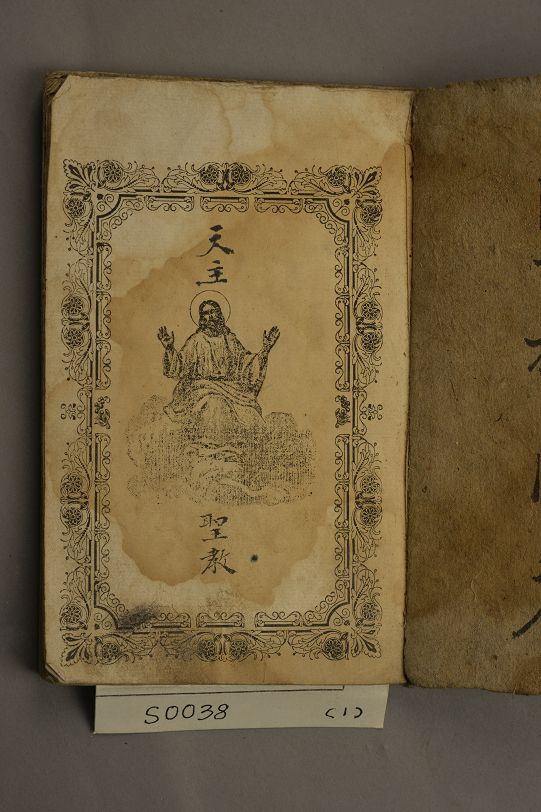 天主
聖教
S0038 (1)